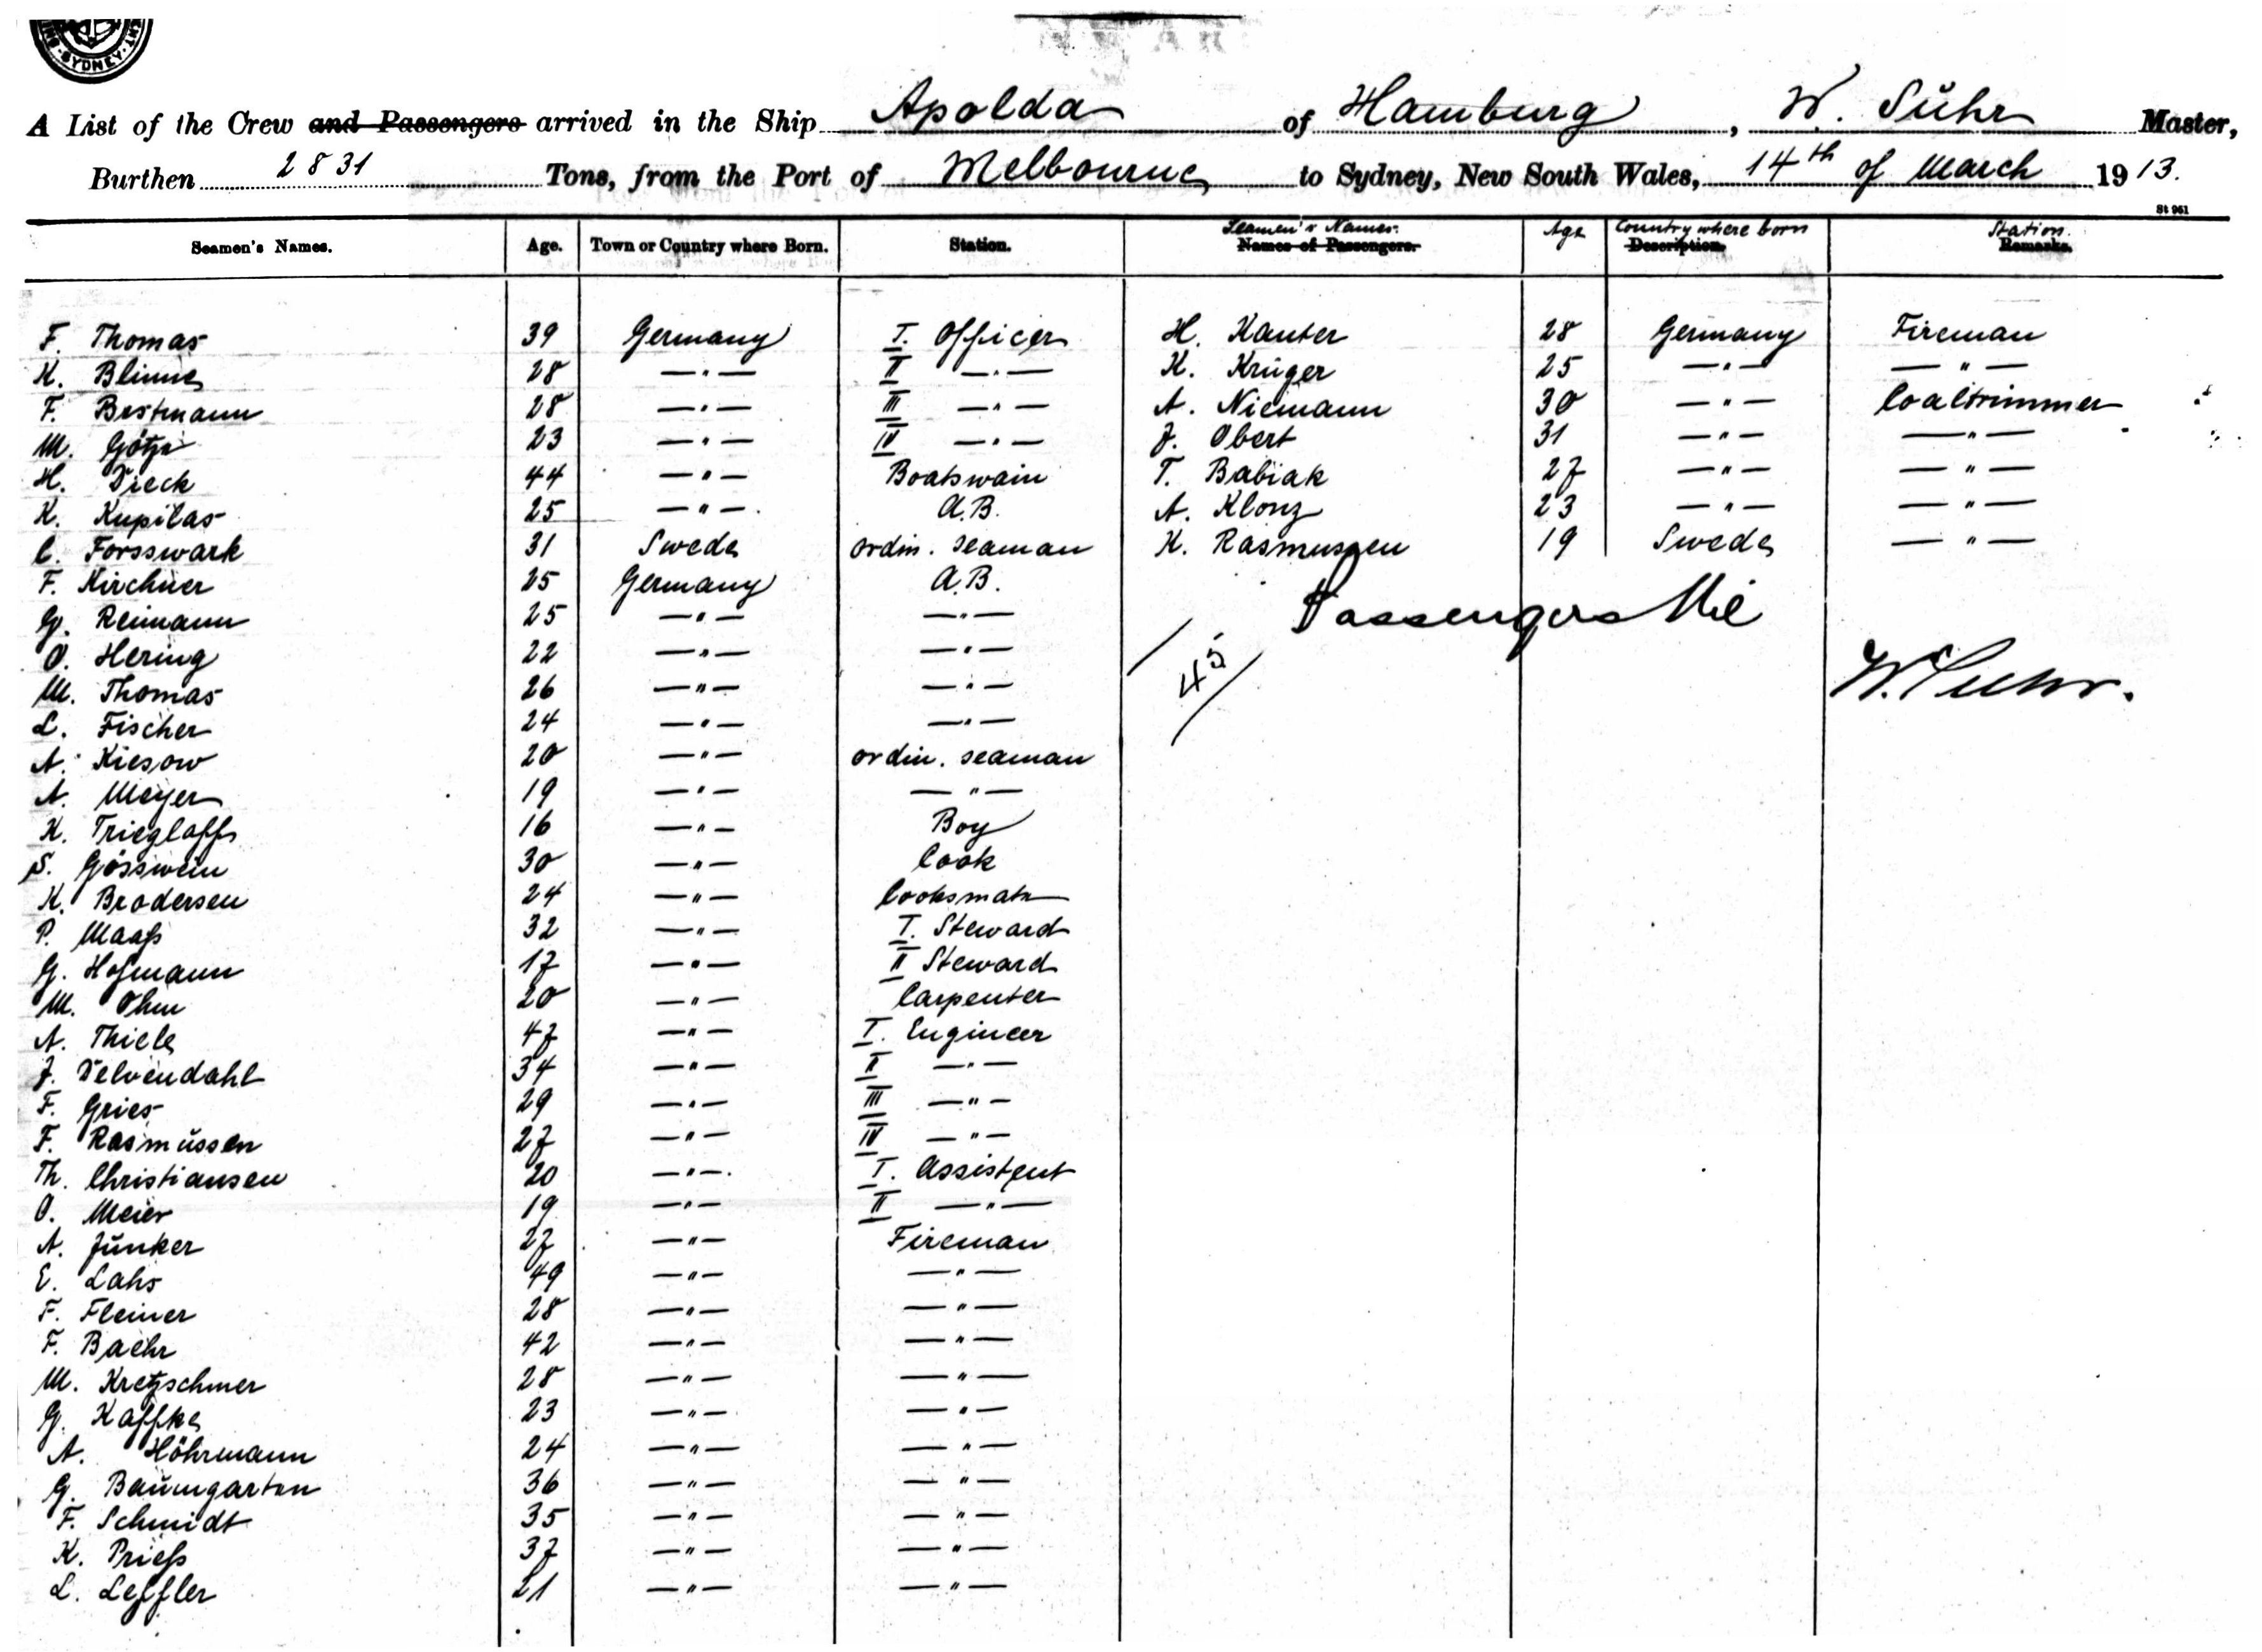 SYDNEY
A List of the Crew and Passengers arrived in the Ship Apolda of Hamburg, W. Sühr Master,
Burthen 2831 Tons, from the Port of Melbourne to Sydney, New South Wales, 14th of March 1913.
St 961
Seamen's Names. Age. Town or Country where Born. Station. Seamen's Names. Names of Passengers. Age Country where born Description. Station. Remarks.
F. Thomas 39 Germany I. Officer H. Kanter 28 Germany Fireman
K. Blinne 28 —"— II —"— K. Krüger 25 —"— —"—
F. Bestmann 28 —"— III —"— A. Niemann 30 —"— Coaltrimmer
M. Götze 23 —"— IV —"— J. Obert 31 —"— —"—
H. Dieck 44 —"— Boatswain T. Babiak 27 —"— —"—
K. Kupilas 25 —"— A.B. A. Klonz 23 —"— —"—
C. Forsswark 31 Swede ordin. seaman K. Rasmussen 19 Swede —"—
F. Kirchner 25 Germany A.B.
G. Reimann 25 —"— —"—
Passengers Nil
O. Hering 22 —"— —"—
45
M. Thomas 26 —"— —"—
W. Suhr.
L. Fischer 24 —"— —"—
A. Kiesow 20 —"— ordin. seaman
A. Meyer 19 —"— —"—
K. Trieglaff 16 —"— Boy
S. Gösswein 30 —"— Cook
K. Brodersen 24 —"— Cooksmate
P. Maaß 32 —"— I. Steward
G. Hofmann 17 —"— II Steward
M. Ohm 20 —"— Carpenter
A. Thiele 47 —"— I. Engineer
J. Delvendahl 34 —"— II —"—
F. Gries 29 —"— III —"—
F. Rasmüssen 27 —"— IV —"—
Th. Christiansen 20 —"— I. Assistent
O. Meier 19 —"— II —"—
A. Junker 27 —"— Fireman
E. Lahs 49 —"— —"—
F. Fleiner 28 —"— —"—
F. Baehr 42 —"— —"—
M. Kretzschmer 28 —"— —"—
G. Kaffke 23 —"— —"—
A. Höhrmann 24 —"— —"—
G. Baumgarten 36 —"— —"—
F. Schmidt 35 —"— —"—
K. Prieß 37 —"— —"—
L. Leffler 21 —"— —"—